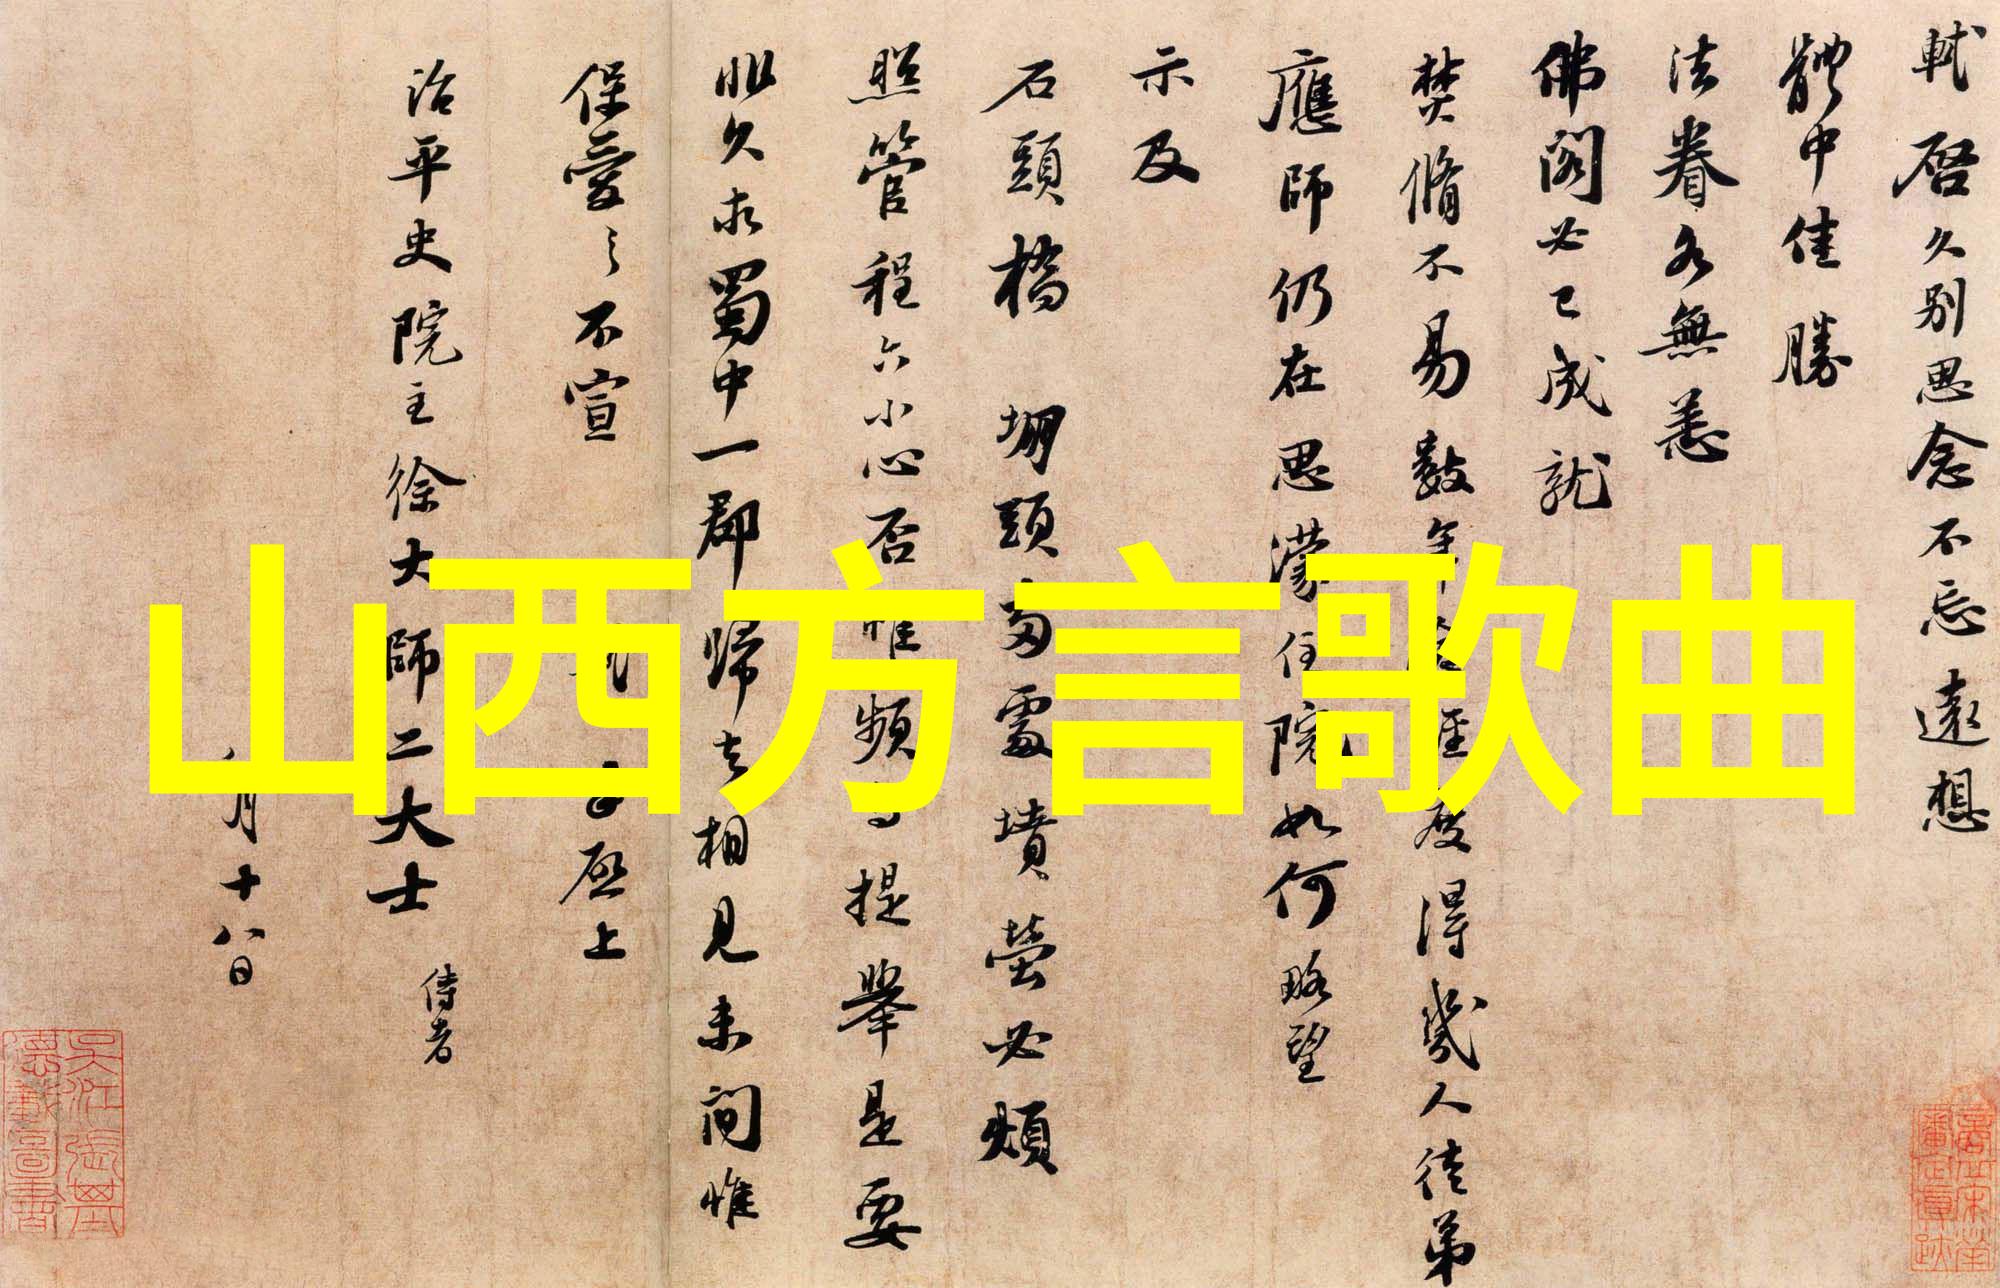 軾啓久別思念不忘遠想
體中佳勝
法眷各無恙
佛閣必已成就
焚脩不易數年度得幾人徒弟
應師仍在思濛住院如何略望
示及
石頭橋 堋頭兩處墳塋必煩
照管程六小心否惟頻與提舉是要
非久求蜀中一郡歸去相見未間惟
保愛之不宣 手啓上
治平史院主徐大師二大士 侍者
月十八日
山西方言歌曲